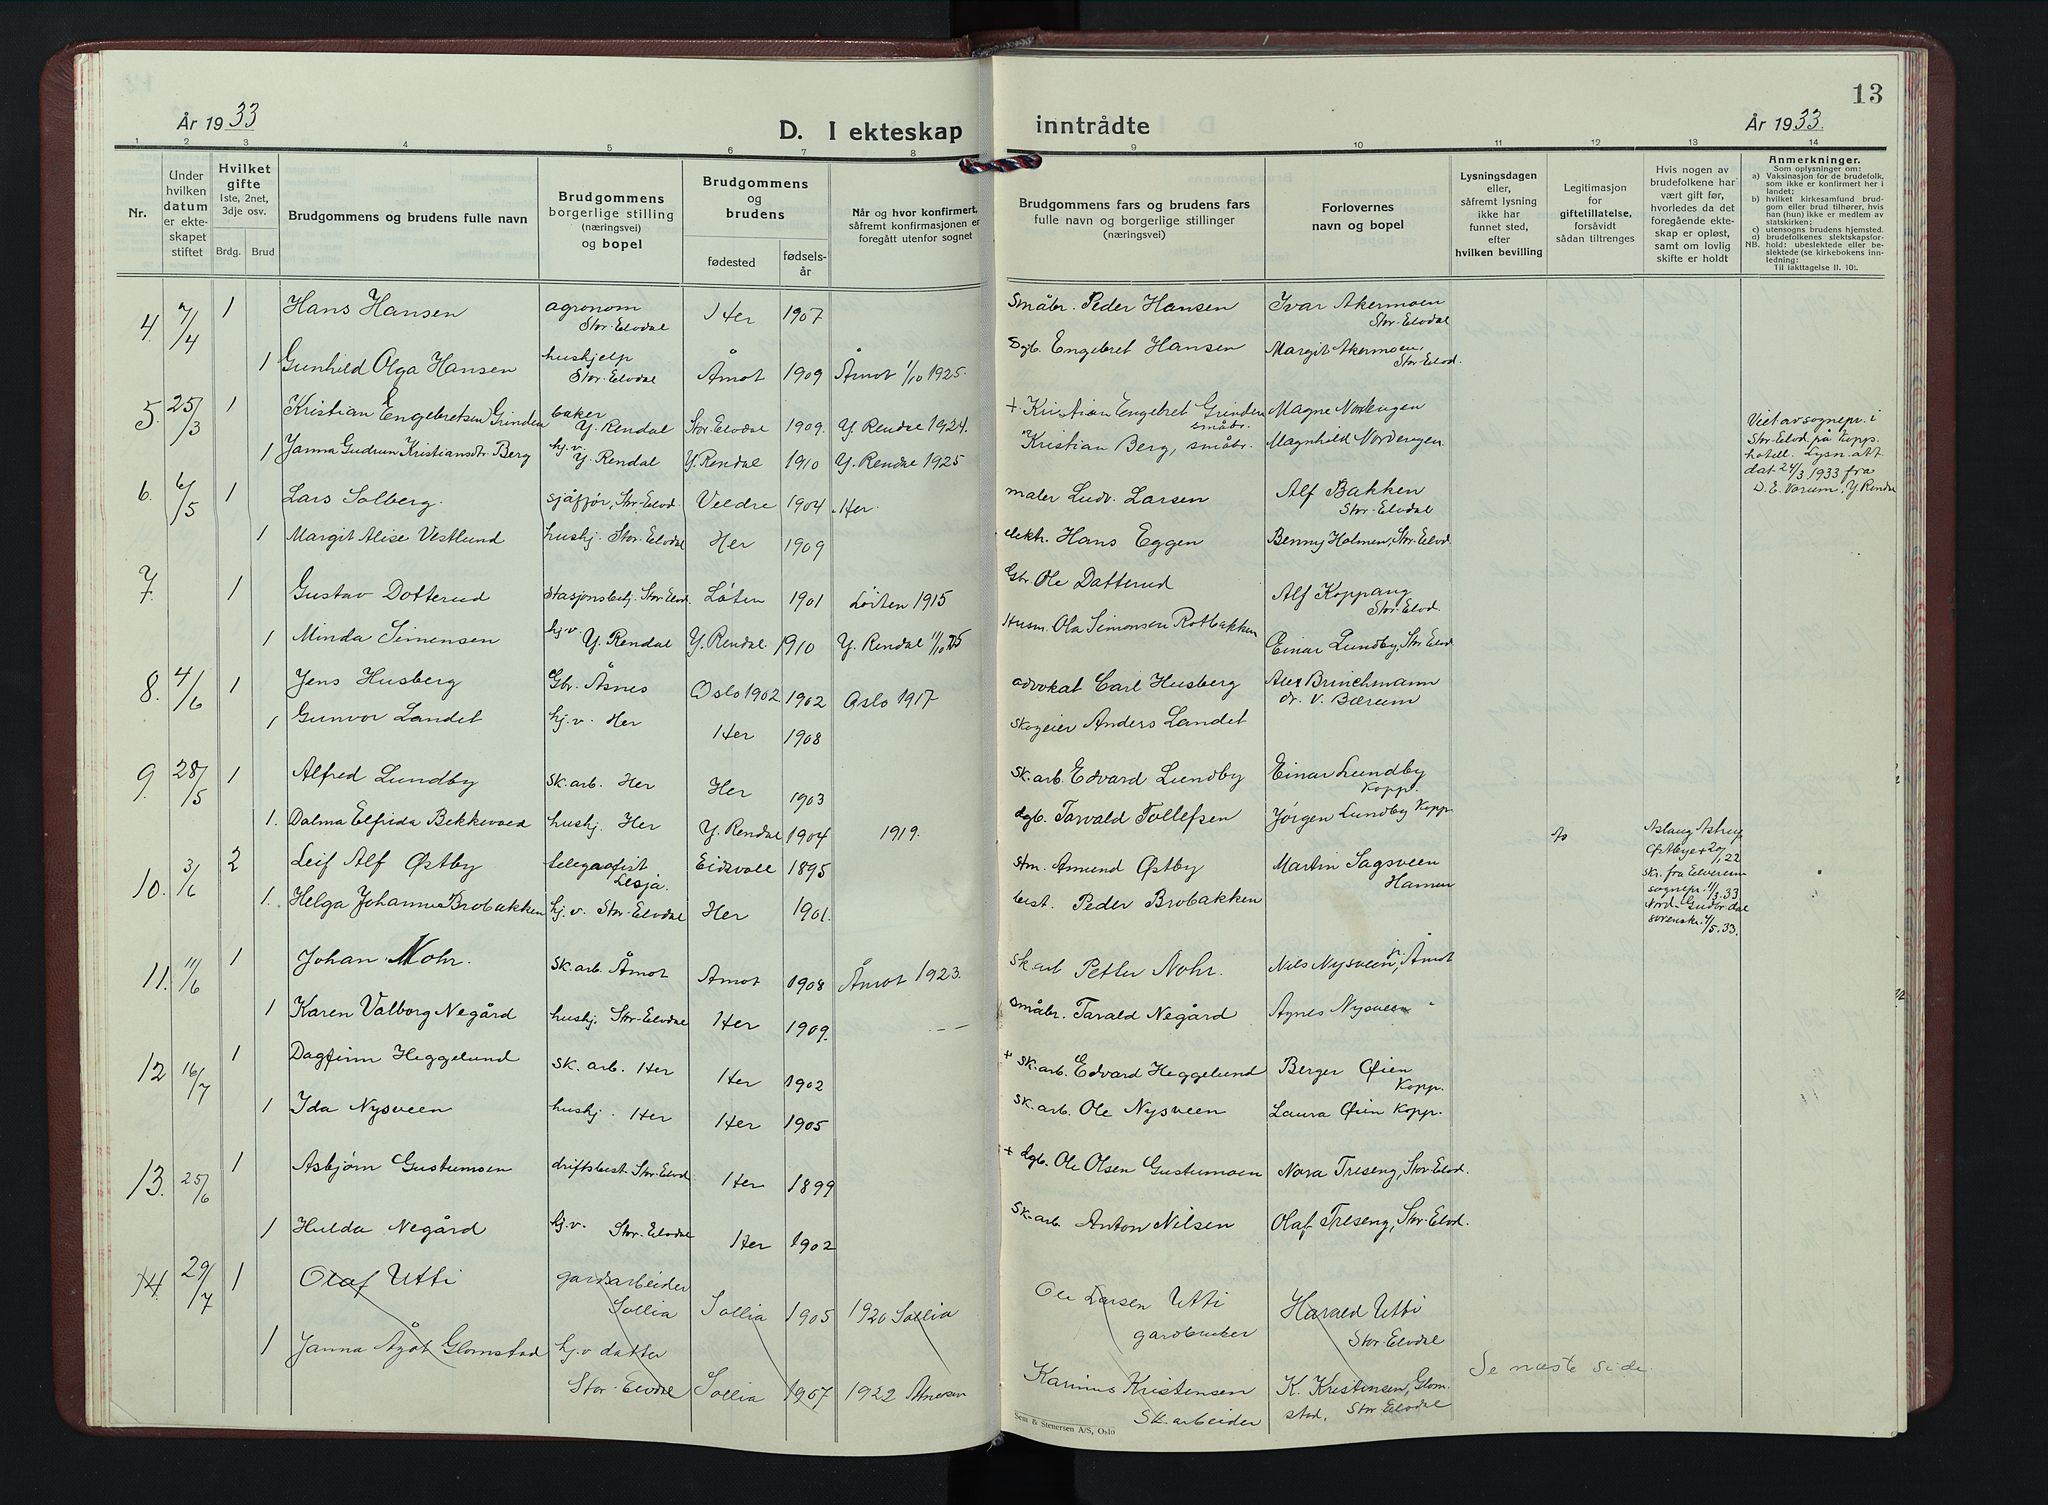 13
År 1933
D. I ekteskap inntrådte
År 1933.
1 2 3 4 5 6 7 8 9 10 11 12 13 14
Nr.
Under hvilken datum er ekteskapet stiftet
Hvilket gifte 1ste, 2net, 3dje osv.
Brdg. Brud
Brudgommens og brudens fulle navn
Brudgommens borgerlige stilling (næringsvei) og bopel
Brudgommens og brudens
fødested
fødselsår
Når og hvor konfirmert, såfremt konfirmasjonen er foregått utenfor sognet
Brudgommens fars og brudens fars fulle navn og borgerlige stillinger (næringsvei)
Forlovernes navn og bopel
Lysningsdagen eller, såfremt lysning ikke har funnet sted, efter hvilken bevilling
Legitimasjon for giftetillatelse, forsåvidt sådan tiltrenges
Hvis nogen av brudefolkene har vært gift før, hvorledes da det foregående ekteskap er opløst, samt om lovlig skifte er holdt
Anmerkninger.
Som oplysninger om:
a) Vaksinasjon for de brudefolk, som ikke er konfirmert her i landet;
b) hvilket kirkesamfund brudgom eller brud tilhører, hvis han (hun) ikke er medlem av statskirken;
c) utensogns brudens hjemsted.
d) brudefolkenes slektskapsforhold: ubeslektede eller beslektede (se kirkebokens innledning:
NB.
Til iakttagelse II. 10).
4. 7/4 1 Hans Hansen agronom Stor-Elvdal Her 1907 Småbr. Peder Hansen Ivar Akermoen Stor-Elvdal
1 Gunhild Olga Hansen hushjelp Stor-Elvdal Åmot 1909 Åmot 1/10 1925. Dgb. Engebret Hansen Margit Akermoen, Stor-Elvd.
5. 25/3 1 Kristian Engebretsen Grinden baker Y. Rendal Stor-Elvdal 1909. Y. Rendal 1924. + Kristian Engebret Grinden småbr. Magne Nordengen
1 Janna Gudrun Kristiansdtr. Berg hj.v. Y. Rendal Y. Rendal 1910 Y. Rendal 1925 Kristian Berg, småbr. Magnhild Nordengen
Viet av sognepr. i Stor-Elvd. på Kopp. hotell. Lysn.att. dat 24/3 1933 fra D. E. Vorum, Y. Rendal
6. 6/5 1 Lars Solberg. sjåfør, Stor-Elvd. Veldre 1904 Her. maler Ludv. Larsen Alf Bakken Stor-Elvdal
1 Margit Alise Vestlund hushj. Stor-Elvdal Her 1909 elektr. Hans Eggen Benny Holmen, Stor-Elvd.
7. 1 Gustav Dotterud stasjonsbetj. Stor-Elvd. Løten 1901 Löiten 1915 Gbr Ole Datterud Alf Koppang Stor-Elvd.
1 Minda Simensen hj.v Y. Rendal Y. Rendal. 1910 Y. Rendal 11/10 25 Husm. Ola Simonsen Rotbakken Einar Lundby, Stor-Elvd
8. 4/6 1 Jens Husberg Gbr. Åsnes Oslo 1902 1902 Oslo 1917 advokat Carl Husberg Alex Brinchmann dr. V. Bærum
1 Gunvor Landet hj.v. Her Her 1908 Skogeier Anders Landet
9. 28/5 1 Alfred Lundby sk.arb. Her Her 1903 sk.arb. Edvard Lundby Einar Lundby Kopp.
1. Dalma Elfrida Bekkevold hushj. Her Y. Rendal 1904 1919. dgb. Torvald Tollefsen Jørgen Lundby Kopp.
10. 3/6 2 Leif Alf Østby telegrafist Lesja. Eidsvoll 1895 stm. Amund Østby Martin Sagsveen Hamar
Aslaug Astrup Østbye + 20/1 22 skr. fra Elverum sognepr. 1/3.33. Nord-Gudbr.dal sorenskr. 4/5.33.
1. Helga Johanne Brobakken hj.v. Stor-Elvdal Her 1901. best. Peder Brobakken
11. 11/6 1 Johan Mohr. sk.arb. Åmot Åmot 1908 Åmot 1923. sk.arb Petter Nohr. Nils Nysveen, Åmot
1 Karen Valborg Negård hushj. Stor-Elvdal Her 1909. småbr. Tarald Negård Agnes Nysveen
12 16/7 1 Dagfinn Heggelund sk. arb. Her Her 1902 + sk.arb. Edvard Heggelund Berger Øien Kopp.
1 Ida Nysveen hushj. Her Her 1905 sk.arb. Ole Nysveen Laura Øien Kopp.
13. 25/6 1 Asbjørn Gustumoen driftsbest. Stor-Elvd Her 1899 + dgb. Ole Olsen Gustumoen Nora Treseng, Stor-Elvd.
1 Hulda Negård hj.v. Stor-Elvdal Her 1902 sk.arb. Anton Nilsen Olaf Treseng, Stor-Elvd.
14. 29/7 1 Olaf Utti gardsarbeider Sollia Sollia 1905 1920 Sollia Ole Larsen Utti gardbruker Harald Utti Stor-Elvdal
1 Janna Ågot Glomstad hj.v datter Stor-Elvdal Sollia 1907 1922 Atnosen Karinus Kristensen sk.arbeider K. Kristensen, Glomstad, Stor-Elvdal
Se næste side.
Sem & Stenersen A/S, Oslo